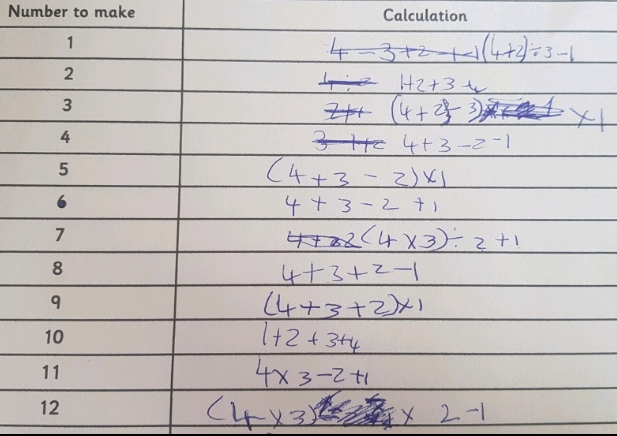 Number to make Calculation
1 (4+2)÷3-1
2 1+2+3-4
3 (4+2-3)×1
4 4+3-2-1
5 (4+3-2)×1
6 4+3-2+1
7 (4×3)÷2+1
8 4+3+2-1
9 (4+3+2)×1
10 1+2+3+4
11 4×3-2+1
12 (4×3)× 2-1